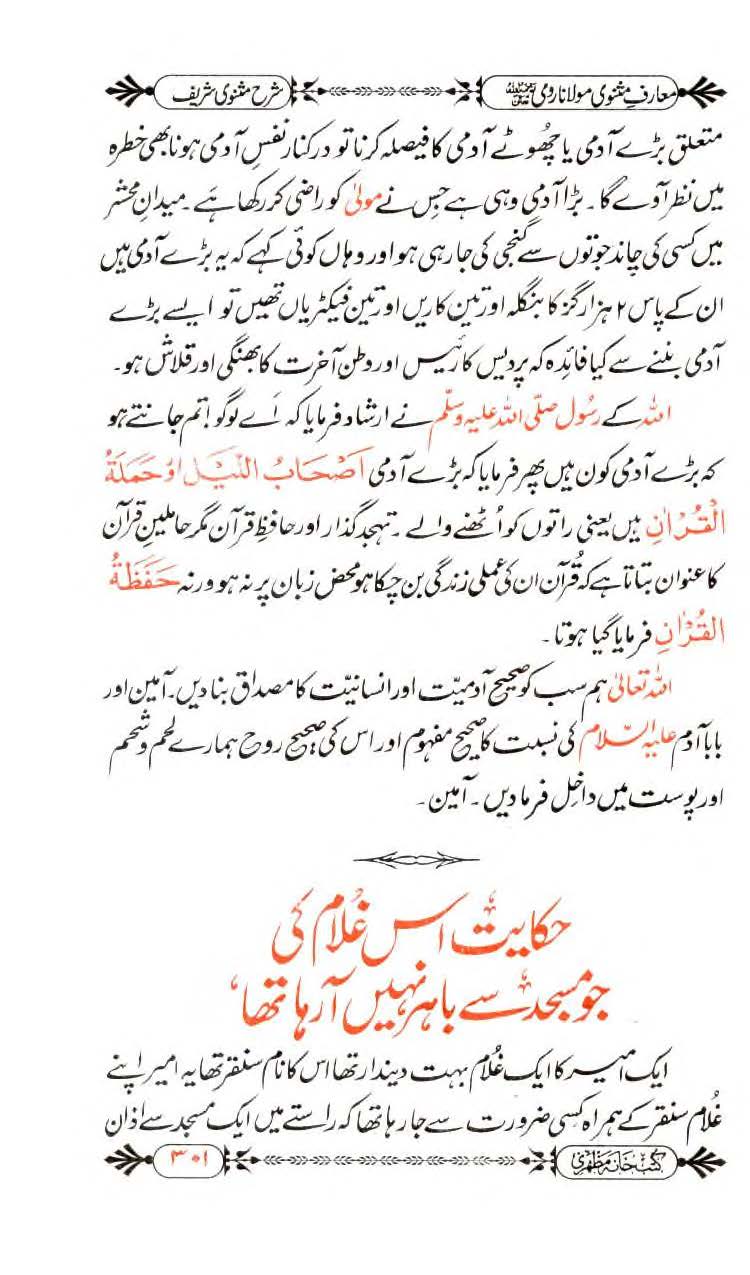 معارفِ مثنوی مولانا رومی شرح مثنوی شریف
متعلق بڑے آدمی یا چھوٹے آدمی کا فیصلہ کرنا تو درکنار نفسِ آدمی ہونا بھی خطرہ
میں نظر آوے گا۔ بڑا آدمی وہی ہے جس نے مولیٰ کو راضی کر رکھا ہے۔ میدانِ محشر
میں کسی کی چاند جوتوں سے گنجی کی جارہی ہو اور وہاں کوئی کہے کہ یہ بڑے آدمی ہیں
ان کے پاس ۲ ہزار گز کا بنگلہ اور تین کاریں اور تین فیکٹریاں تھیں تو ایسے بڑے
آدمی بننے سے کیا فائدہ کہ پردیس کا رئیس اور وطنِ آخرت کا بھنگی اور قلاش ہو۔
اللہ کے رسُول صلّی اللہ علیہ وسلّم نے ارشاد فرمایا کہ اَے لوگو! تم جانتے ہو
کہ بڑے آدمی کون ہیں پھر فرمایا کہ بڑے آدمی اَصْحَابُ اللَّیْلِ اَوْ حَمَلَةُ
الْقُرْاٰنِ ہیں یعنی راتوں کو اُٹھنے والے۔ تہجد گذار اور حافظِ قرآن مگر حاملینِ قرآن
کا عنوان بتاتا ہے کہ قُرآن ان کی عملی زندگی بن چکا ہو محض زبان پر نہ ہو ورنہ حَفَظَةُ
الْقُرْاٰنِ فرمایا گیا ہوتا۔
اللہ تعالیٰ ہم سب کو صحیح آدمیّت اور انسانیّت کا مصداق بنادیں۔ آمین اور
بابا آدم علیہ السّلام کی نسبت کا صحیح مفہوم اور اس کی صحیح روح ہمارے لحم و شحم
اور پوست میں داخِل فرما دیں۔ آمین۔
حکایت اس غُلام کی
جو مسجد سے باہر نہیں آرہا تھا
ایک امیر کا ایک غُلام بہت دیندار تھا اس کا نام سنقر تھا یہ امیر اپنے
غُلام سنقر کے ہمراہ کسِی ضرورت سے جارہا تھا کہ راستے میں ایک مسجد سے اذان
کتب خانہ مظہری ۳۰۱